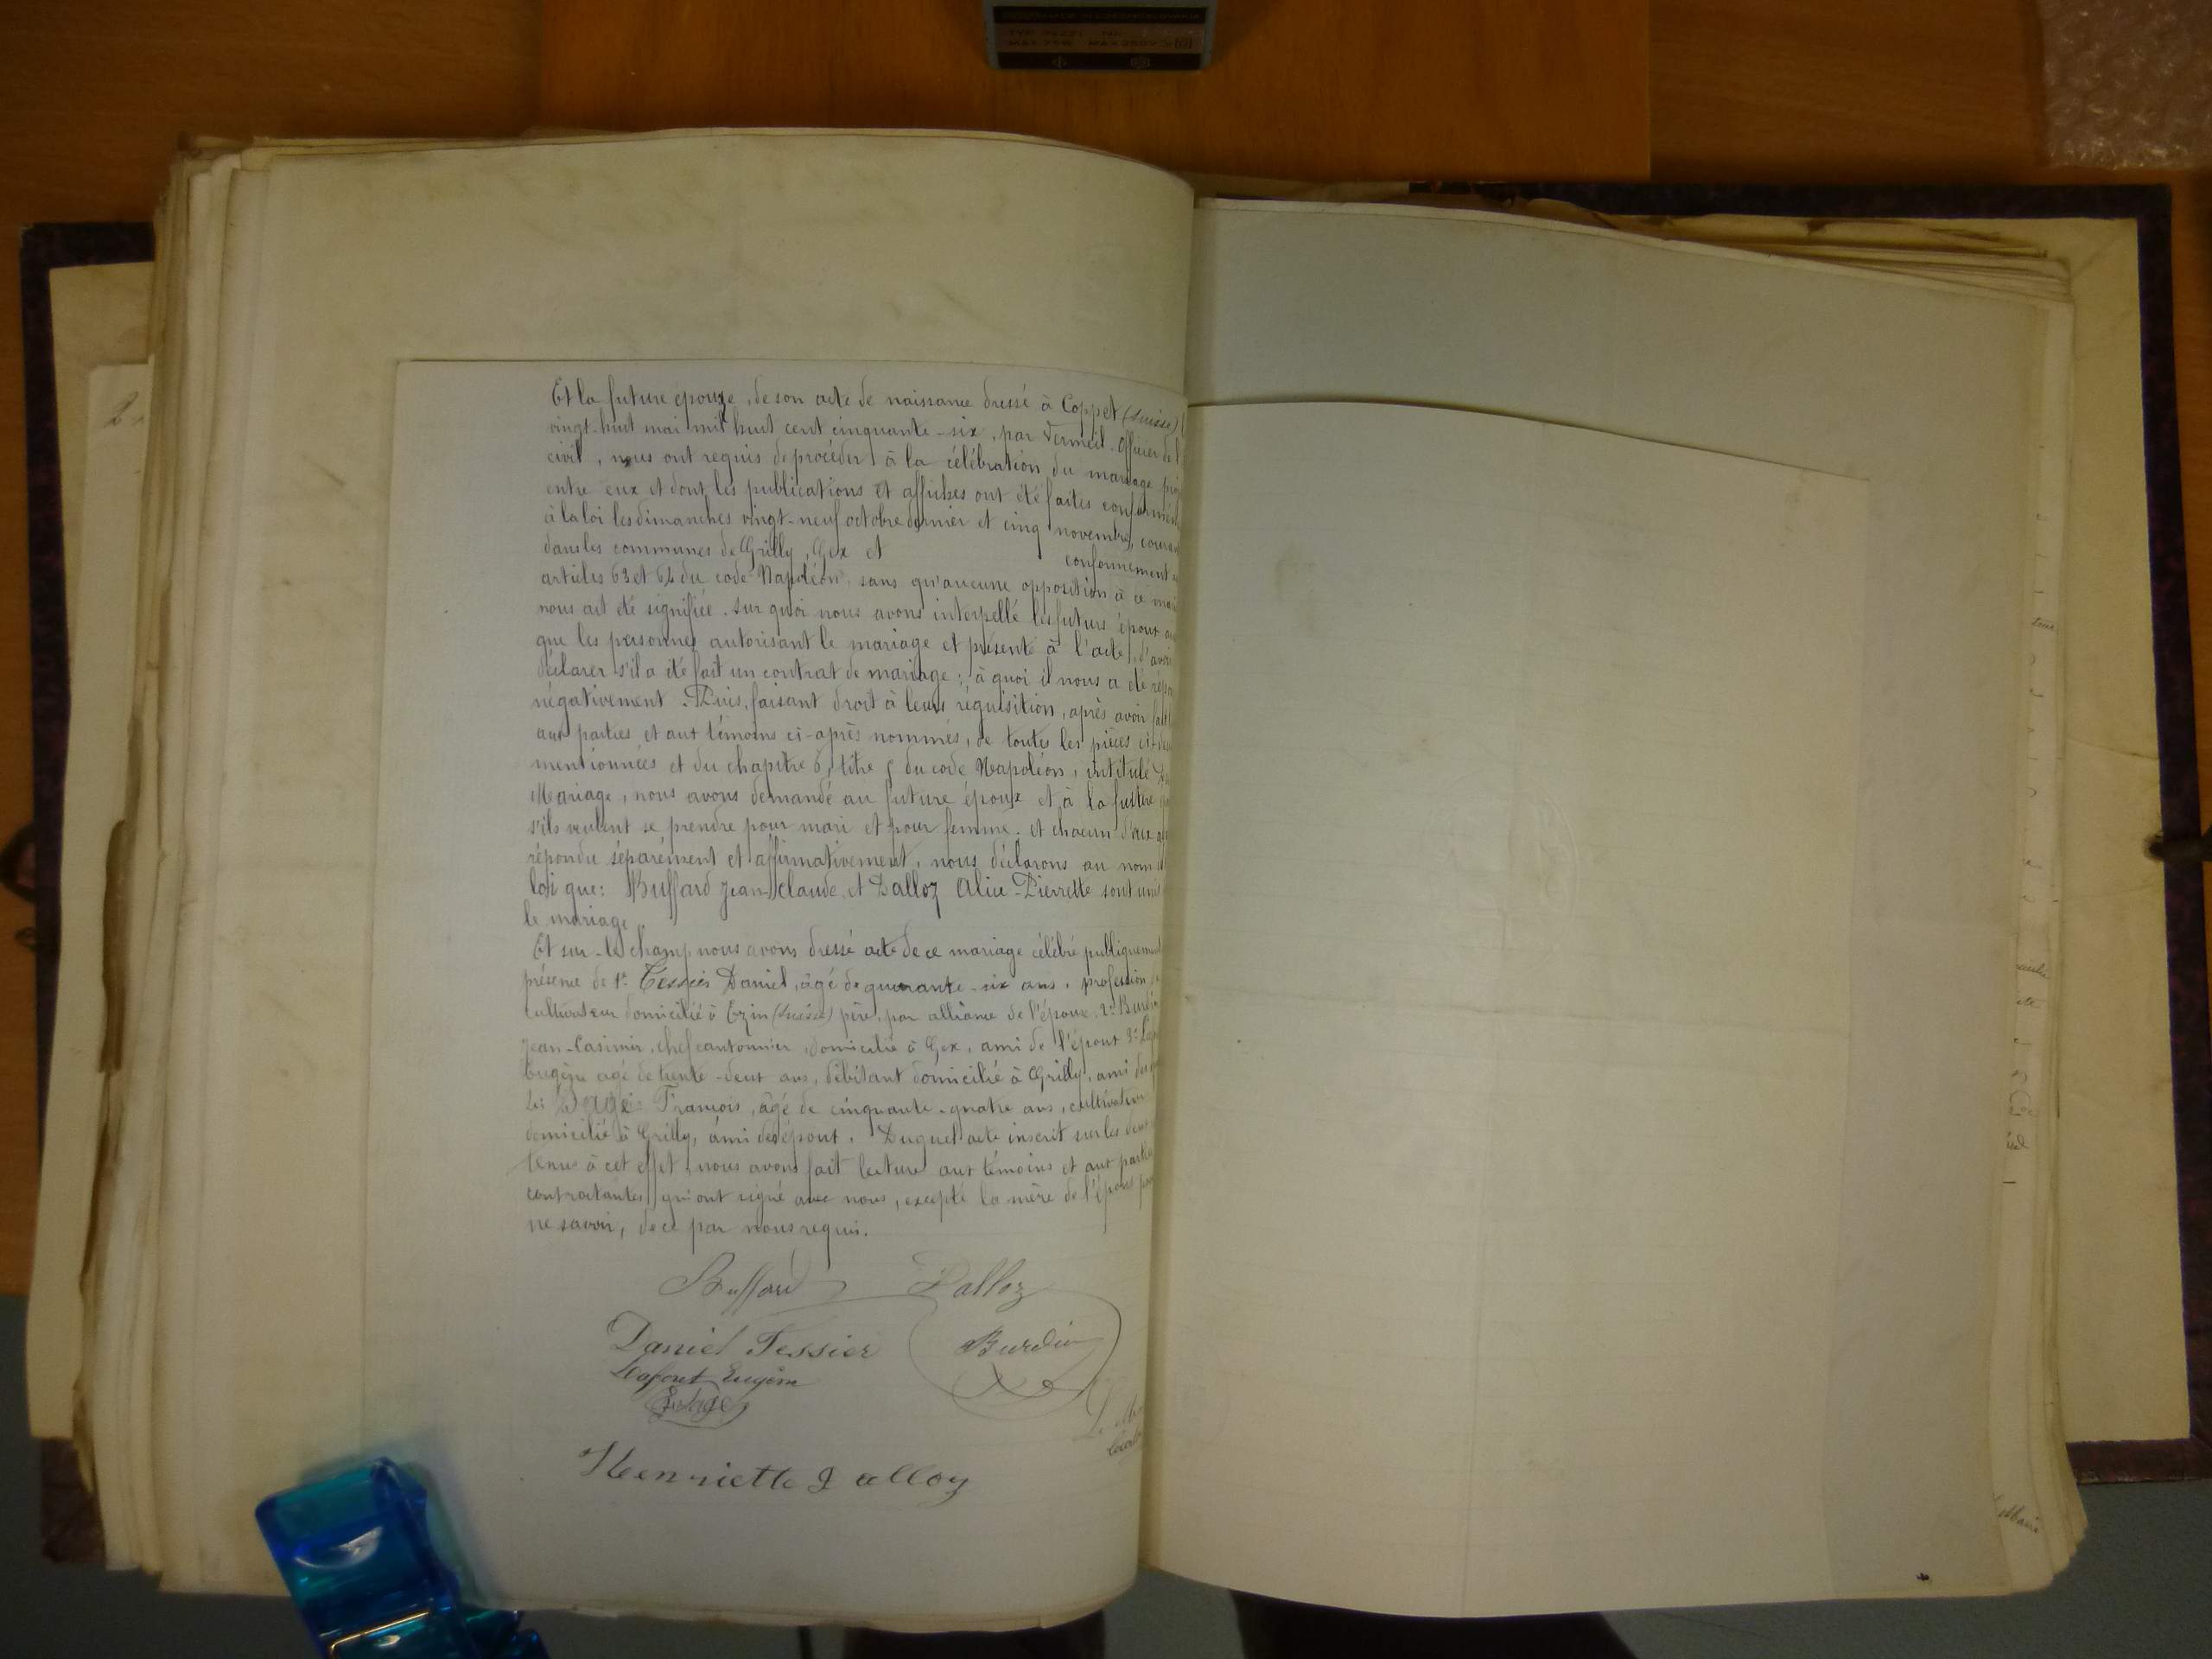 Et la future épouse, de son acte de naissance dressé à Coppet (Suisse)
vingt-huit mai mil huit cent cinquante-six, par Vermeil. Officier de l'
civil, nous ont requis de procéder à la célébration du mariage proj
entre eux et dont les publications et affiches ont été faites conformém
à la loi les dimanches vingt-neuf octobre dernier et cinq novembre, couran
dans les communes de Grilly, Gex et conformement
articles 63 et 64 du code Napoléon, sans qu'aucune opposition à ce mari
nous ait été signifiée. Sur quoi nous avons interpellé les futurs épout
que les personnes autorisant le mariage et présente à l'acte, d'avoir
déclarer s'il a été fait un contrat de mariage; à quoi il nous a été répo
négativement. Puis, faisant droit à leurs réquisition, après avoir fait
aux parties et aut témoins ci-après nommés, de toutes les pièces ci-
mentionnées et du chapitre 6, titre 5 du code Napoléon, intitulé
Mariage, nous avons demandé au future époux et à la future
s'ils veulent se prendre pour mari et pour femme. et chacun d'eux
répondu séparément et affirmativement, nous déclarons au nom
loi que: Buffard Jean-Claude, et Dalloz Alice-Pierrette sont unis
le mariage.
Et sur-le champ nous avons dressé acte de ce mariage célébré publiquement
présence de 1° Tessier Daniel, âgé de quarante-six ans, profession
cultivateur domicilié à (Suisse) père, par alliance de l'épouse, 2° Burdin
Jean-Casimir, chef cantonnier, domicilié à Gex, ami de l'épout 3°
Eugène agé de trente-deut ans, débitant domicilié à Grilly, ami des
François, âgé de cinquante-quatre ans, cultivateur
domicilié à Grilly, ami des épout. Duquel acte inscrit sur les deut
tenus à cet effet, nous avons fait lecture aut témoins et aut partie
contractantes, qui ont signé avec nous, excepté la mère de l'épous pour
ne savoir, de ce par nous requis.
Buffard Dalloz
Daniel Tessier Burdin
Lafont Eugène
Henriette Dalloz